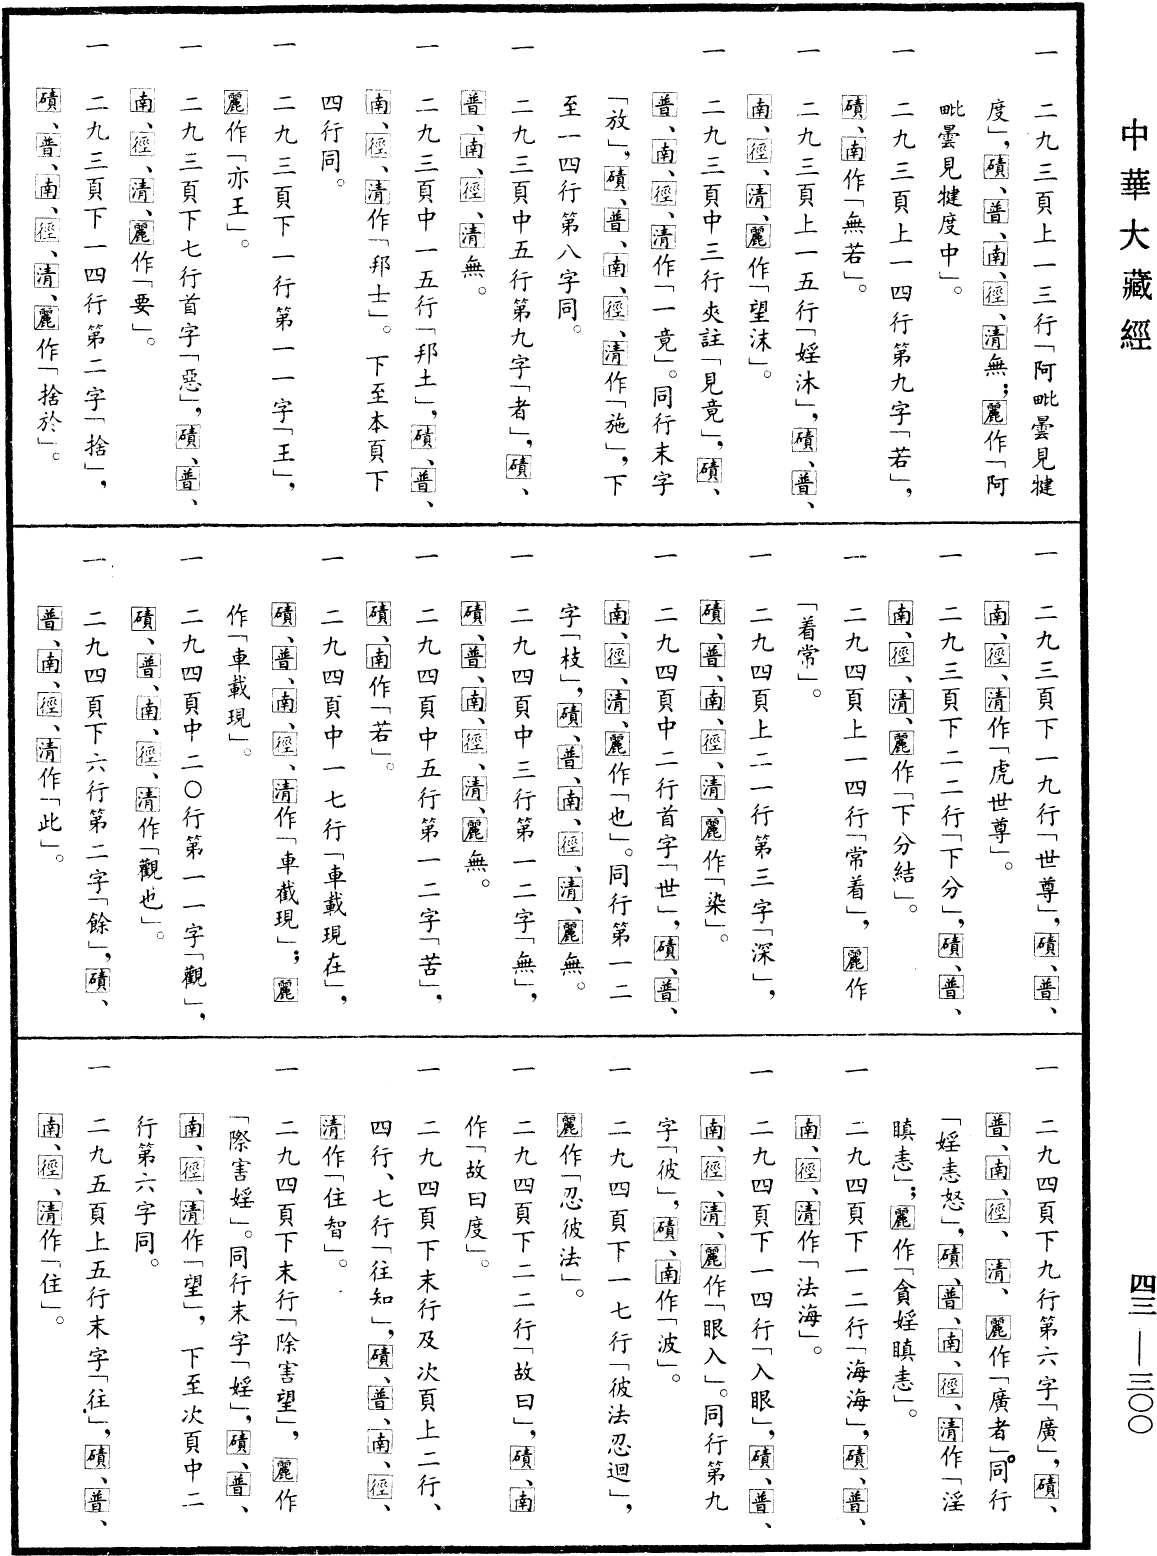 中華大藏經
一　二九三頁上一三行「阿毗曇見犍
度」，磧、普、南、徑、清無；麗作「阿
毗曇見犍度中」。
一　二九三頁上一四行第九字「若」，
磧、南作「無若」。
一　二九三頁上一五行「婬沐」，磧、普、
南、徑、清、麗作「望沫」。
一　二九三頁中三行夾註「見竟」，磧、
普、南、徑、清作「一竟」。同行末字
「放」，磧、普、南、徑、清作「施」，下
至一四行第八字同。
一　二九三頁中五行第九字「者」，磧、
普、南、徑、清無。
一　二九三頁中一五行「邦土」，磧、普、
南、徑、清作「邦士」。下至本頁下
四行同。
一　二九三頁下一行第一一字「王」，
麗作「亦王」。
一　二九三頁下七行首字「惡」，磧、普、
南、徑、清、麗作「要」。
一　二九三頁下一四行第二字「捨」，
磧、普、南、徑、清、麗作「捨於」。
一　二九三頁下一九行「世尊」，磧、普、
南、徑、清作「虎世尊」。
一　二九三頁下二二行「下分」，磧、普、
南、徑、清、麗作「下分結」。
一　二九四頁上一四行「常着」，麗作
「着常」。
一　二九四頁上二一行第三字「深」，
磧、普、南、徑、清、麗作「染」。
一　二九四頁中二行首字「世」，磧、普、
南、徑、清、麗作「也」。同行第一二
字「枝」，磧、普、南、徑、清、麗無。
一　二九四頁中三行第一二字「無」，
磧、普、南、徑、清、麗無。
一　二九四頁中五行第一二字「苦」，
磧、南作「若」。
一　二九四頁中一七行「車載現在」，
磧、普、南、徑、清作「車截現」；麗
作「車載現」。
一　二九四頁中二〇行第一一字「觀」，
磧、普、南、徑、清作「觀也」。
一　二九四頁下六行第二字「餘」，磧、
普、南、徑、清作「此」。
一　二九四頁下九行第六字「廣」，磧、
普、南、徑、清、麗作「廣者」。同行
「婬恚怒」，磧、普、南、徑、清作「淫
瞋恚」；麗作「貪婬瞋恚」。
一　二九四頁下一二行「海海」，磧、普、
南、徑、清作「法海」。
一　二九四頁下一四行「入眼」，磧、普、
南、徑、清、麗作「眼入」。同行第九
字「彼」，磧、南作「波」。
一　二九四頁下一七行「彼法忍迴」，
麗作「忍彼法」。
一　二九四頁下二二行「故曰」，磧、南
作「故曰度」。
一　二九四頁下末行及次頁上二行、
四行、七行「往知」，磧、普、南、徑、
清作「住智」。
一　二九四頁下末行「除害望」，麗作
「際害婬」。同行末字「婬」，磧、普、
南、徑、清作「望」，下至次頁中二
行第六字同。
一　二九五頁上五行末字「往」，磧、普、
南、徑、清作「住」。
四三—三〇〇